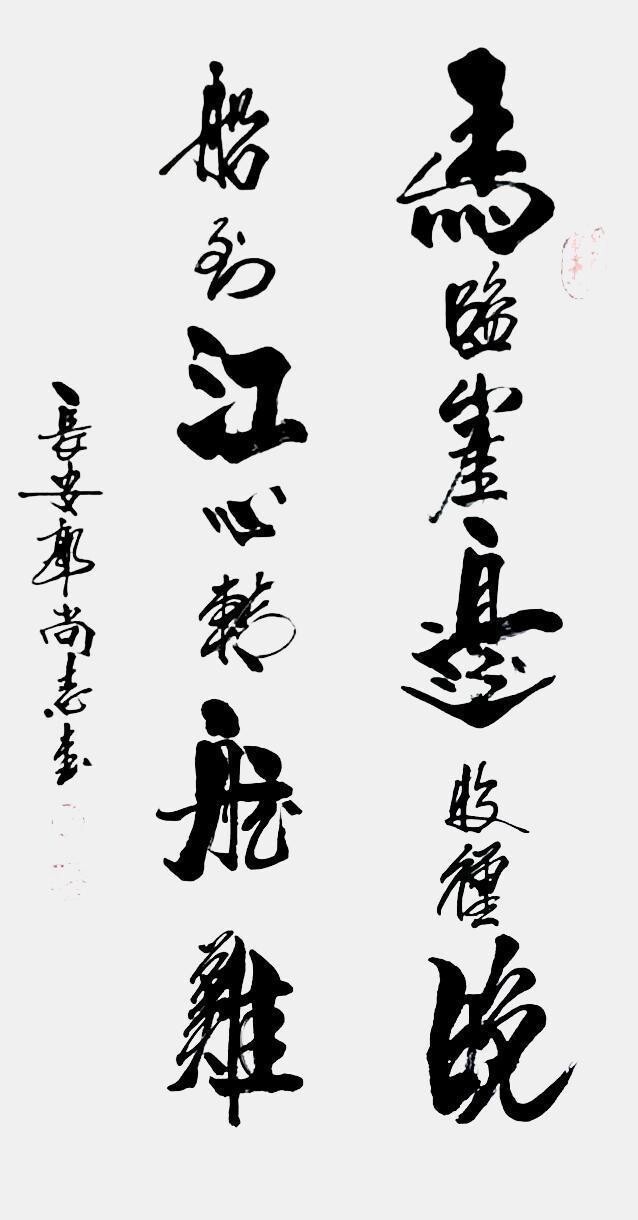 馬臨崖邊收繮晚
船到江心轉舵難
長安郭尚志書